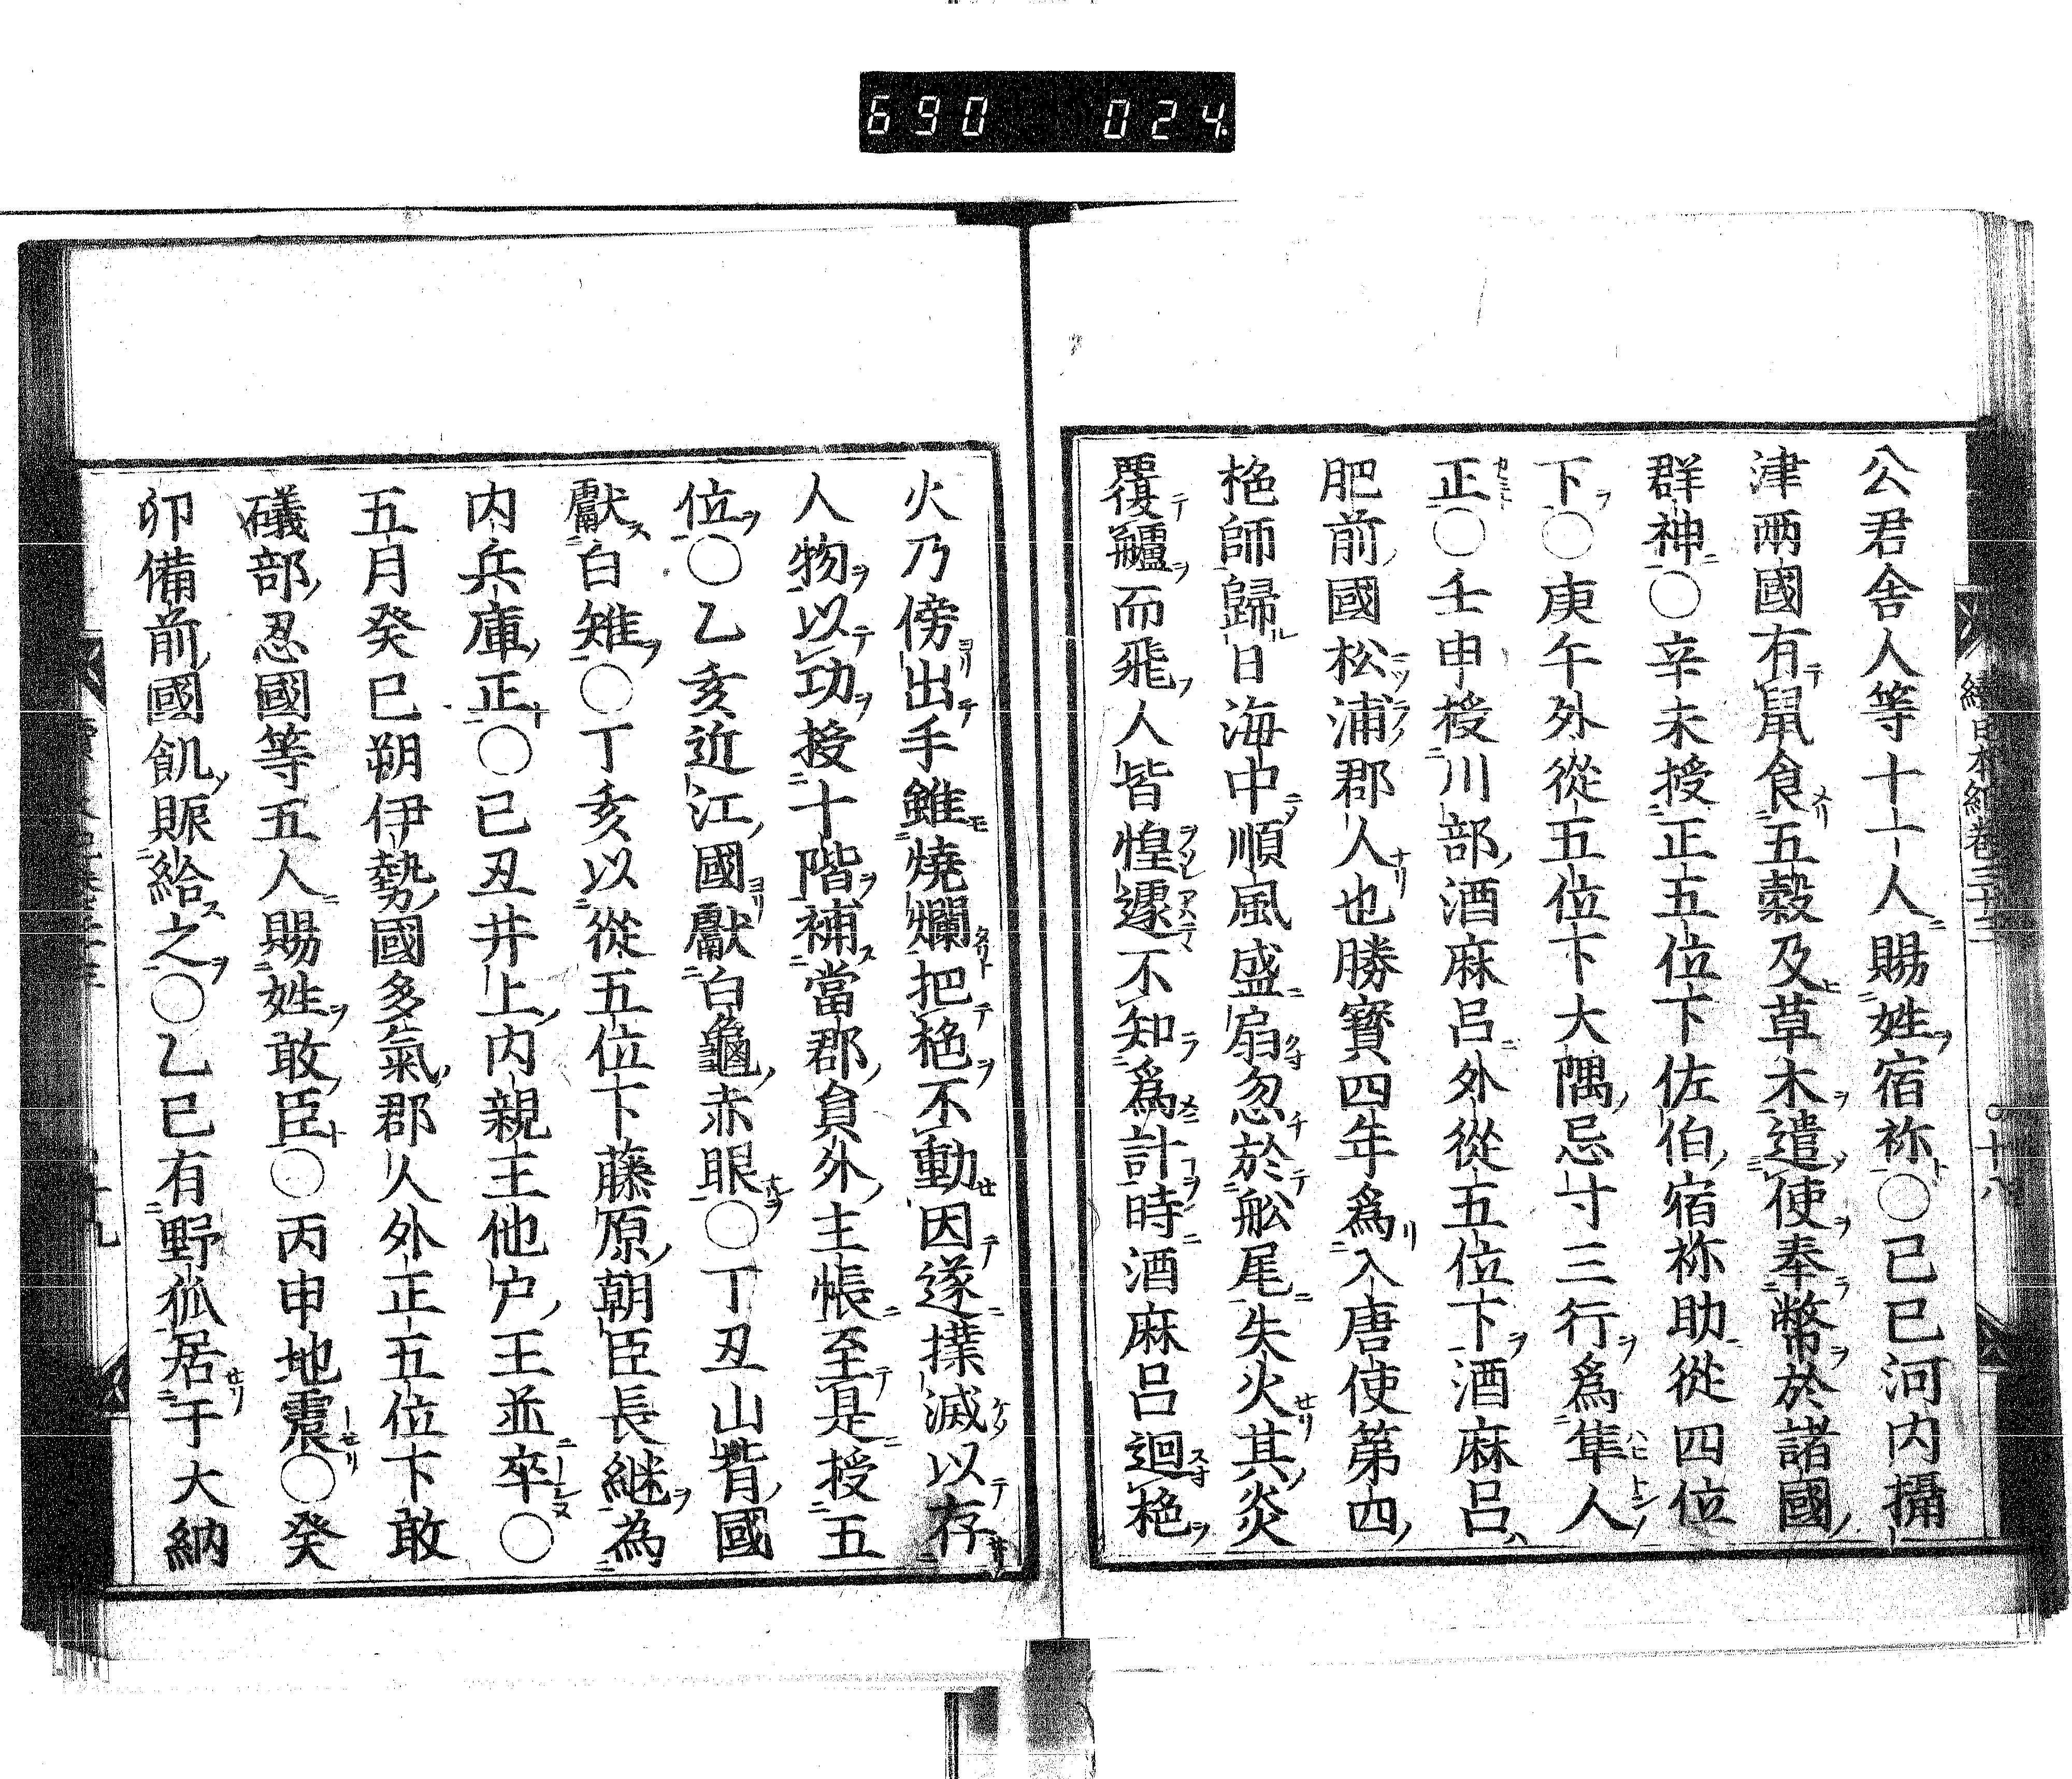 690 024
續日本紀卷三十三 ○十八
公君舍人等十一人賜姓宿祢○己巳河内攝
津兩國有鼠食五穀及草木遣使奉幣於諸國
群神○辛未授正五位下佐伯宿祢助從四位
下○庚午外從五位下大隅忌寸三行爲隼人
正○壬申授川部酒麻呂外從五位下酒麻呂
肥前國松浦郡人也勝寳四年爲入唐使第四
柂師歸日海中順風盛扇忽於舩尾失火其炎
覆艫而飛人皆惶遽不知爲計時酒麻呂迴柂
火乃傍出手雖燒爛把柂不動因遂撲滅以存
人物以功授十階補當郡負外主帳至是授五
位○乙亥近江國獻白龜赤眼○丁丑山背國
獻白雉○丁亥以從五位下藤原朝臣長継為
内兵庫正○己丑井上内親王他户王並卒○
五月癸巳朔伊勢國多氣郡人外正五位下敢
礒部忍國等五人賜姓敢臣○丙申地震○癸
卯備前國飢賑給之○乙巳有野狐居于大納